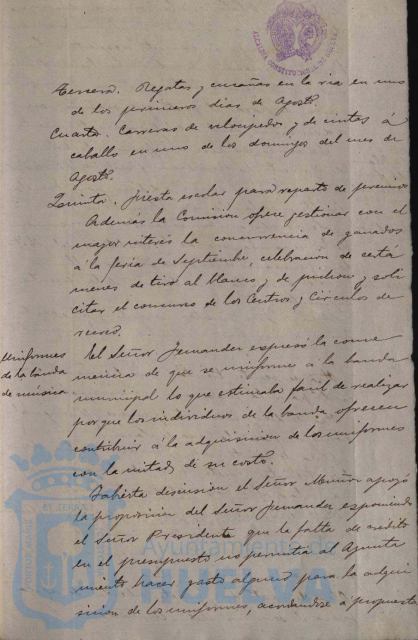 ALCALDIA CONSTITUCIONAL DE HUELVA
Tercero. Regatas y cucañas en la ria en uno
de los primeros dias de Agosto.
Cuarto. Carreras de velocipedos y de cintas á
caballo en uno de los domingos del mes de
Agosto.
Quinto. Fiesta escolar para reparto de premios
Además la Comision ofrece gestionar con el
mayor interés la concurrencia de ganados
á la feria de Septiembre, celebracion de certá
menes de tiro al blanco, y de pichon y soli
citar el concurso de los Centros y Circulos de
recreo.
Uniformes
de la banda
de música
El Señor Jernandez expresó la conve
niencia de que se uniforme á la banda
municipal lo que estimaba fácil de realizar
porque los individuos de la banda ofrecen
contribuir á la adquisicion de los uniformes
con la mitad de su costo.
Abierta discusion el Señor Muñoz apoyó
la proposicion del Señor Jernandez exponiendo
el Señor Presidente que la falta de credito
en el presupuesto no permitia al Ayunta
miento hacer gasto alguno para la adqui
sicion de los uniformes, acordandose á propuesta
Ayuntamiento de
HUELVA